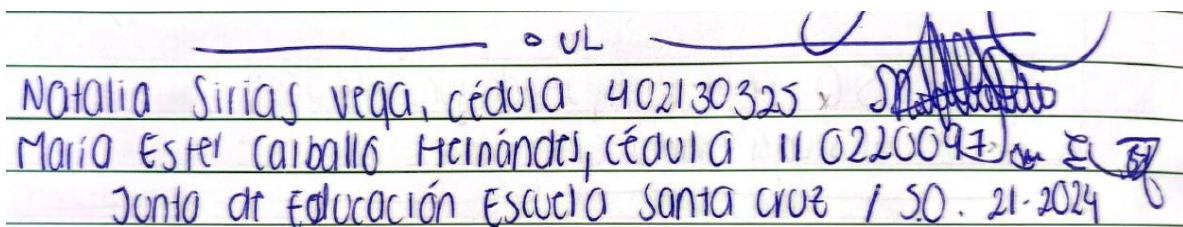 UL
Natalia Sirias Vega, cédula 402130325
María Ester Carballo Hernández, cédula 110220097
Junta de Educación Escuela Santa Cruz / S.O. 21-2024